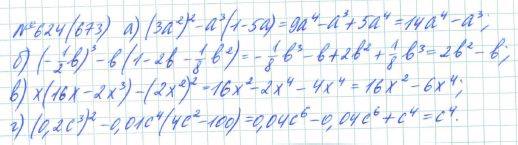 №624(673) а) (3a²)² - a³(1-5a) = 9a⁴ - a³ + 5a⁴ = 14a⁴ - a³;
б) (-1/2 b)³ - b(1 - 2b - 1/8 b²) = -1/8 b³ - b + 2b² + 1/8 b³ = 2b² - b;
в) x(16x - 2x³) - (2x²)² = 16x² - 2x⁴ - 4x⁴ = 16x² - 6x⁴;
г) (0,2c³)² - 0,01c⁴(4c² - 100) = 0,04c⁶ - 0,04c⁶ + c⁴ = c⁴.